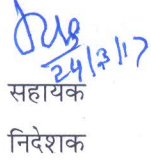 24/3/17
सहायक
निदेशक